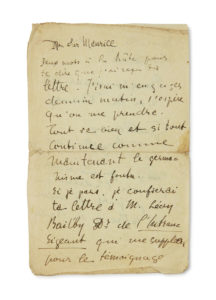 Mon cher Maurice
Deux mots à la hâte pour
te dire que j'ai reçu ta
lettre. J'irai m'engager
demain matin, j'espère
qu'on me prendra.
Tout va bien et si tout
continue comme
maintenant le germa-
nisme est foutu.
Si je pars, je confierai
ta lettre à M. Lévy
Bailby Dr de l'Intran-
sigeant qui me
pour le témoignage